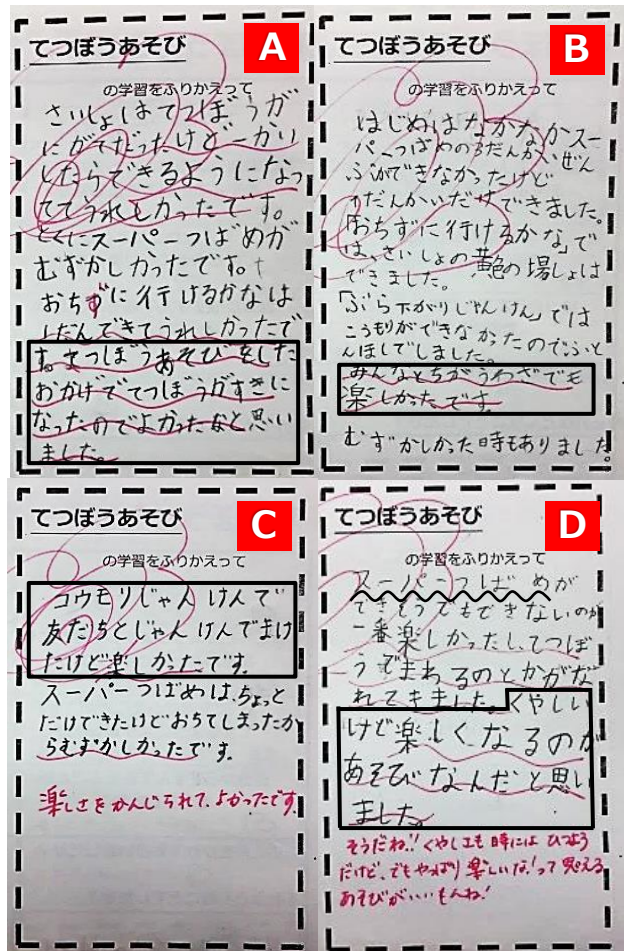 てつぼうあそび
A
の学習をふりかえって
さいしょはてつぼうが
にがてだったけど一かい
したらできるようになっ
ててうれしかったです。
とくにスーパーつばめが
むずかしかったです。
おちずに行けるかなは
だんできてうれしかったで
す。てつぼうあそびをした
おかげでてつぼうがすきに
なったのでよかったなと思い
ました。
てつぼうあそび
B
の学習をふりかえって
はじめはなかなかスー
パーつばめの だんかい、ぜん
ぶができなかったけど
だんかいだけできました。
「おちずに行けるかな」で
は、さいしょの の場しょは
できました。
「ぶら下がりじゃんけん」では
こうもりができなかったのでふと
んほしでしました。
みんなとちがうわざでも
楽しかったです。
むずかしかった時もありました。
てつぼうあそび
C
の学習をふりかえって
コウモリじゃんけんで
友だちとじゃんけんでまけ
たけど楽しかったです。
スーパーつばめは、ちょっと
だけできたけどおちてしまったか
らむずかしかったです。
楽しさをかんじられて、よかったです。
てつぼうあそび
D
の学習をふりかえって
スーパーつばめが
できそうでもできないのが
一番楽しかったし、てつぼ
うでまわるのとかがな
れてきました。くやしい
けど楽しくなるのが
あそびなんだと思い
ました。
そうだね!!くやしさも時にはひつよう
だけど、でもやっぱり楽しいな!って思える
あそびがいいもんね!